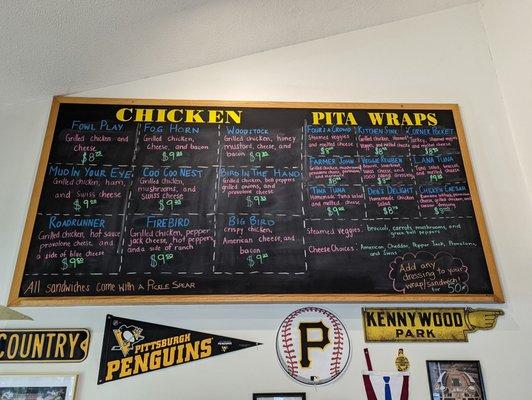 CHICKEN
FOWL PLAY
Grilled chicken and
cheese
FOG HORN
Grilled chicken,
cheese, and bacon
WOODSTOCK
Grilled chicken, honey
mustard, Swiss cheese, and
bacon
MUD IN YOUR EYE
Grilled chicken, ham,
and Swiss cheese
COO COO NEST
Grilled chicken,
mushrooms, and
Swiss cheese
BIRD IN THE HAND
Grilled chicken, bell peppers
grilled onions, and
provolone cheese
ROADRUNNER
Grilled chicken, hot sauce
provolone cheese, and
a side of blue cheese
FIREBIRD
Grilled chicken, pepper
jack cheese, hot peppers
and a side of ranch
BIG BIRD
crispy chicken,
American cheese, and
bacon
All sandwiches come with a Pickle Spear
PITA WRAPS
FOUR'S A CROWD
Steamed veggies
and cheese
KITCHEN SINK
CORNER REEF
Turkey, steamed veggies
FARMER JOHN
VEGGIE REUBEN
LANA TUNA
TINA TUNA
Homemade tuna salad
DEB'S DELIGHT
Homemade chicken salad
CHICKEN CAESAR
Steamed Veggies: broccoli, carrots, mushrooms, and
green bell peppers
Cheese Choices: American, Cheddar, Pepper Jack, Provolone,
and Swiss
Add any
dressing to your
wrap/sandwich
for 50¢
COUNTRY
PITTSBURGH
PENGUINS
P
KENNYWOOD
PARK